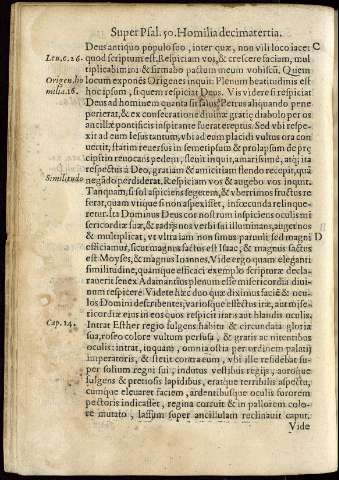 Super Psal. 50. Homilia decimatertia.
Deus antiquo populo suo, inter quæ, non vili loco iacet C
Leu. c. 26. quod scriptum est. Respiciam vos, & crescere faciam, mul
tiplicabimini & firmabo pactum meum vobiscũ. Quem
Origen. ho locum exponẽs Origenes inquit. Plenum beatitudinis est
milia. 16. hoc ipsum, si quem respiciat Deus. Vis videre si respiciat
Deus ad hominem quanta sit salus? Petrus aliquando pene
perierat, & ex consecratione divinæ gratię diabolo per os
ancillæ pontificis inspirante fuerat ereptus. Sed vbi respe-
xit ad eum Iesus tantum, vbi ad eum placidi vultus ora con
uertit, statim reuersus in semetipsum & prolapsum de præ
cipitio renocans pedem, stetit inquit, amarissimè, atq; ita
respectus à Deo, gratiam & amicitiam flendo recepit, quã
Similitudo negãdo perdiderat. Respiciam vos & augebo vos inquit.
Tanquam, si sol aspiciens segetem, & vbertim fructus re
ferat, quam vtique si non aspexisset, infœcunda relinque-
retur. Ita Dominus Deus cor nostrum inspiciens oculis mi
sericordiæ suæ, & radijs nos verbi sui illuminans, auget nos
& multiplicat, vt vltra iam non simus paruuli sed magni D
efficiamur, sicut magnus factus est Isaac, & magnus factus
est Moyses, & magnus Ioannes. Vide ergo quam eleganti
similitudine, quamque efficaci exemplo scripturæ decla-
rauerit senex Adamantius plenum esse misericordia diui-
num respicere. Videte hæc duo quæ diximus faciẽ & ocu-
los Domini describentes, variosque effectus iræ, aut mise-
ricordiæ eius in eos quos respicit iratis aut blandis oculis.
Cap. 14. Intrat Esther regio fulgens habitu & circundata gloria
sua, roseo colore vultum perfusa, & gratis ac nitentibus
oculis: intrat, inquam, omnia ostia per ordinem palatij
imperatoris, & stetit contra eum, vbi ille residebat su-
per solium regni sui, indutus vestibus regijs, auroque
fulgens & pretiosis lapidibus, eratque terribilis aspectu,
cumque eleuaret faciem, ardentibusque oculis furorem
pectoris indicasset, regina corruit & in pallorem colo-
re mutato, lassum super ancillulam reclinauit caput.
Vide